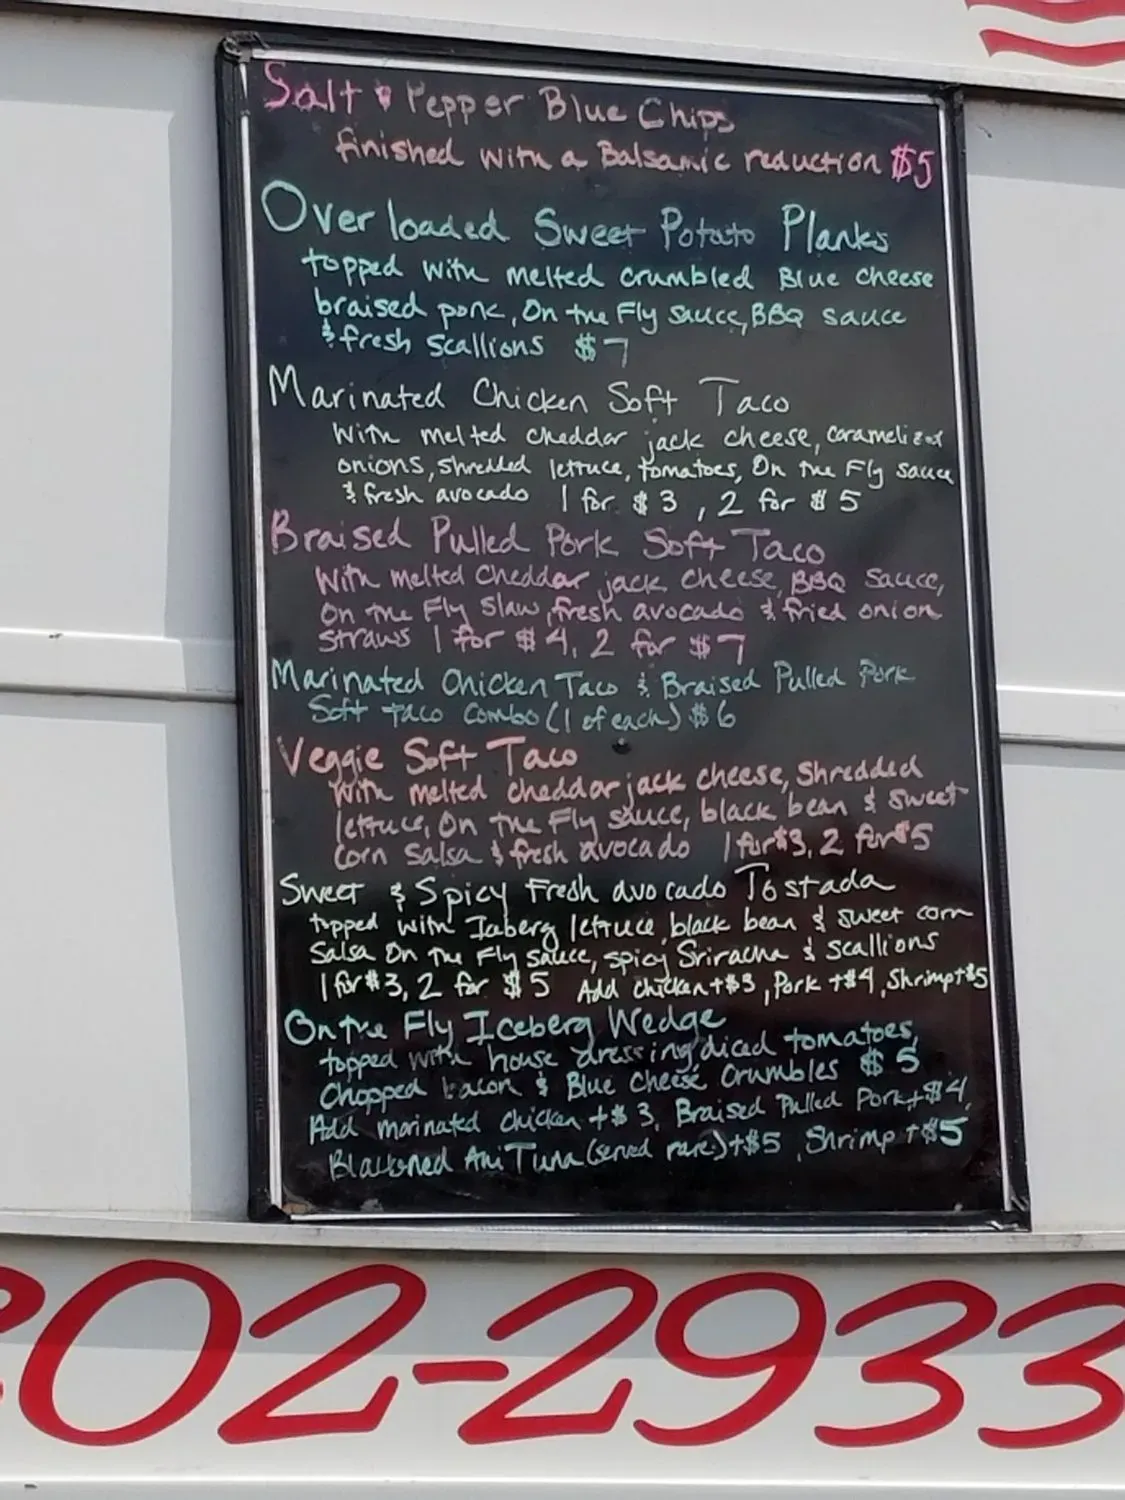 Salt & Pepper Blue Chips
finished with a Balsamic reduction $5
Over loaded Sweet Potato Planks
topped with melted crumbled Blue cheese
braised pork, On the Fly sauce, BBQ sauce
& fresh scallions $7
Marinated Chicken Soft Taco
with melted cheddar jack cheese, caramelized
onions, shredded lettuce, tomatoes, On the Fly sauce
& fresh avocado 1 for $3, 2 for $5
Braised Pulled Pork Soft Taco
with melted cheddar jack cheese, BBQ sauce,
on the Fly slaw, fresh avocado & fried onion
straws 1 for $4, 2 for $7
Marinated Chicken Taco & Braised Pulled Pork
Soft Taco Combo (1 of each) $6
Veggie Soft Taco
with melted cheddar jack cheese, shredded
lettuce, On the Fly sauce, black bean & sweet
corn salsa & fresh avocado 1 for $3, 2 for $5
Sweet & Spicy Fresh avocado Tostada
topped with Iceberg lettuce, black bean & sweet corn
Salsa On the Fly sauce, spicy Sriracha & scallions
1 for $3, 2 for $5 Add chicken +$3, Pork +$4, Shrimp +$5
On the Fly Iceberg Wedge
topped with house dressing, diced tomatoes,
Chopped bacon & Blue Cheese Crumbles $5
Add marinated chicken +$3, Braised Pulled Pork +$4,
Blackened Ahi Tuna (served rare) +$5, Shrimp +$5
02-2933